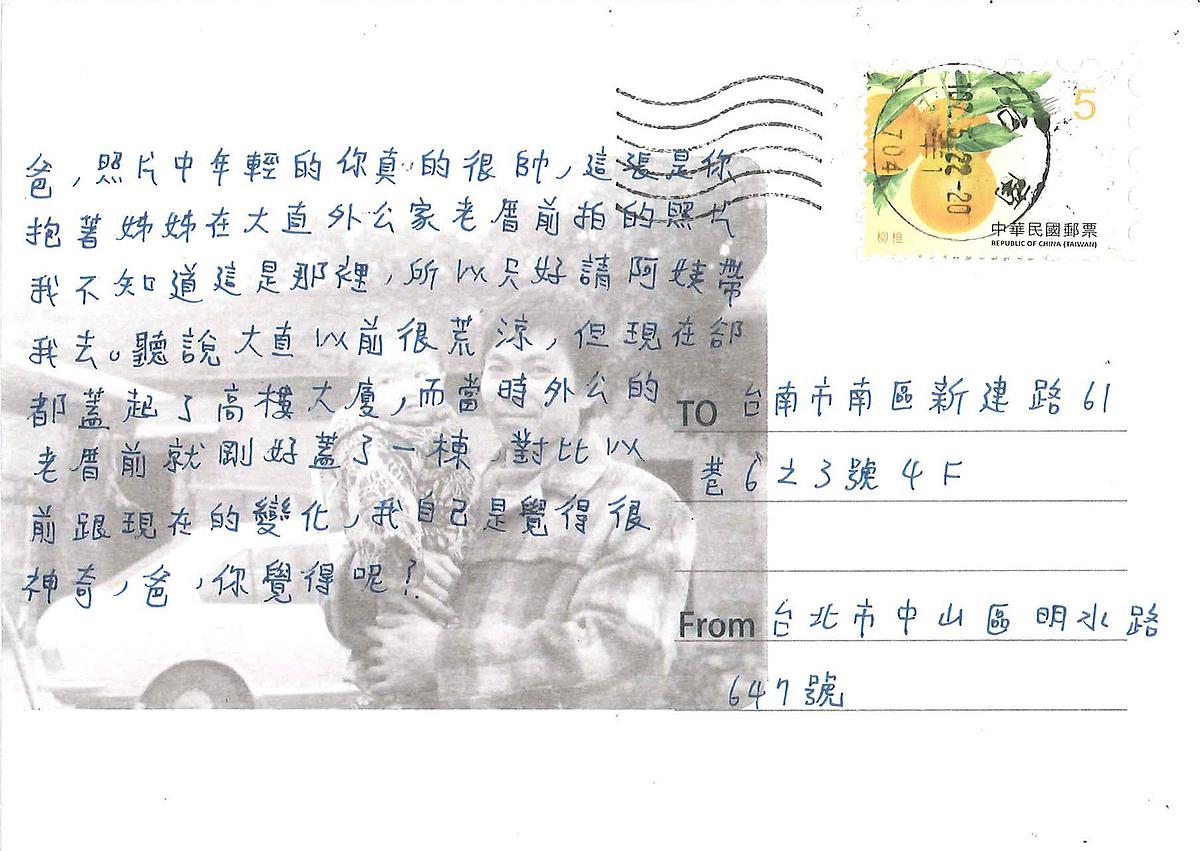 爸,照片中年輕的你真的很帥,這張是你
抱著姊姊在大直外公家老厝前拍的照片
我不知道這是那裡,所以只好請阿姨帶
我去。聽說大直以前很荒涼,但現在卻
都蓋起了高樓大廈,而當時外公的
老厝前就剛好蓋了一棟,對比以
前跟現在的變化,我自己是覺得很
神奇,爸,你覺得呢?
5
704
柳橙
中華民國郵票
REPUBLIC OF CHINA (TAIWAN)
TO 台南市南區新建路61
巷6之3號4F
From 台北市中山區明水路
647號